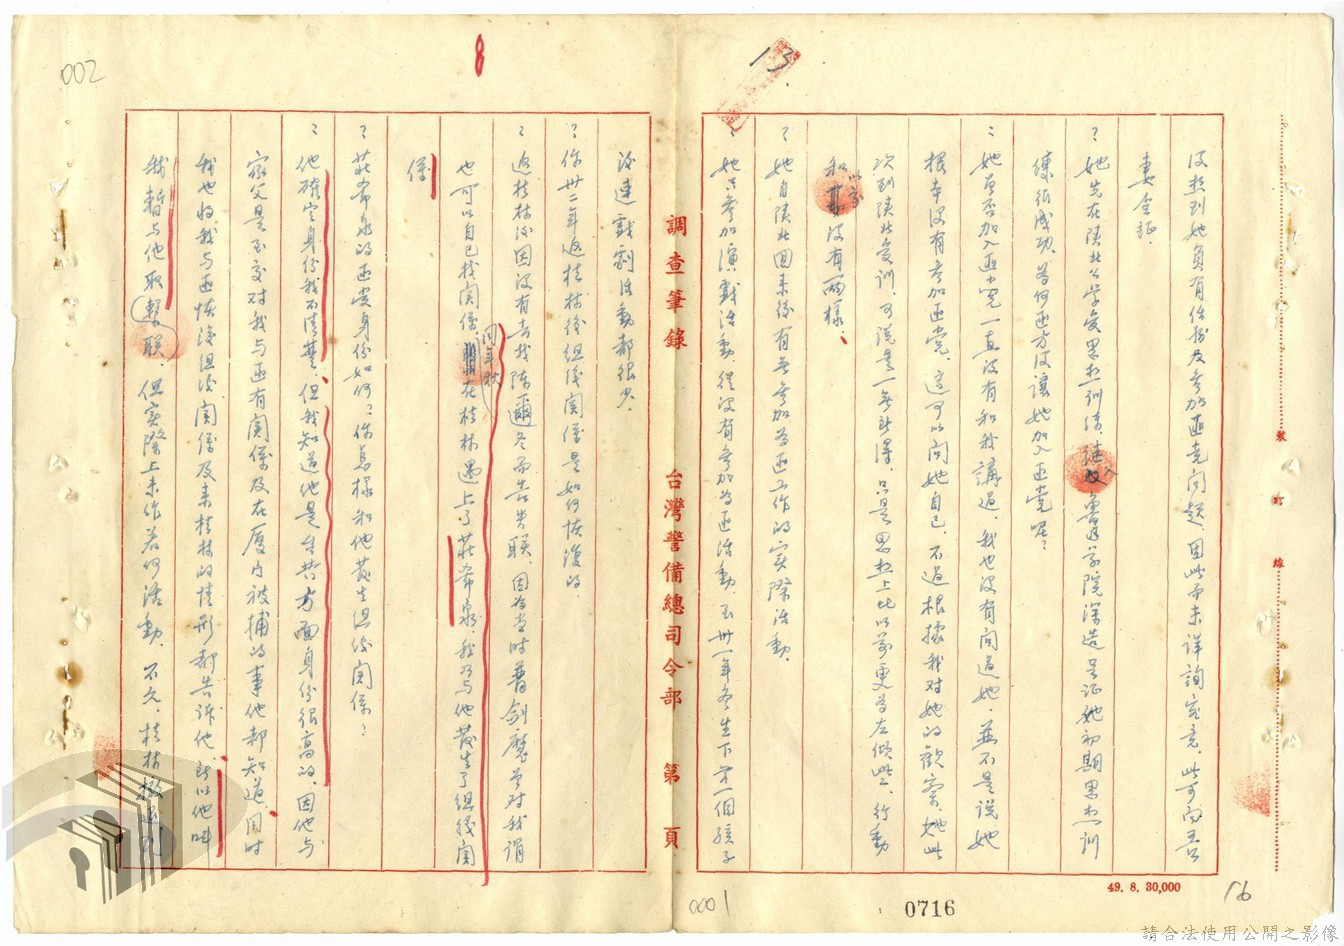 002
8
13
沒想到她負有任務及參加匪党问題，因此而未详詢究竟，此可向吾
妻查証。
？她先在陕北公学受思想訓練，继入魯迅学院深造，足证她初期思想訓
練很成功，為何匪方沒讓她加入匪党呢？
：她曾否加入匪党，一直沒有和我講过，我也沒有问过她，並不是說她
根本沒有参加匪党，这可以问她自己，不過根據我对她的觀察，她此
次到陕北受訓，可說是一無所得，只是思想上比以前更為左傾些，行動
和以前沒有兩樣。
？她自陕北回来後有無参加為匪工作的实際活動。
：她只参加演戲活動，從沒有参加為匪活動，至卅一年冬生下第一個孩子
後連戲劇活動都很少。
？你卅二年返桂林後組織関係是如何恢復的。
：返桂林後因沒有去找陈爾冬而告失联，因為当时普劍魔曾对我謂
也可以自己找関係，同年秋在桂林遇上了莊希泉，我乃与他發生了組織関
係
？莊希泉的匪党身份如何？你怎樣和他發生組織関係？
：他確定身份我不清楚，但我知道他是台共方面身份很高的，因他与
家父是至交，对我与匪有関係及在厦门被捕的事他都知道，同时
我也將我与匪恢復組織関係及来桂林的情形都告诉他，所以他叫
我暫与他取聯，但实際上未作若何活動，不久，桂林撤退到
調查筆錄 台灣警備總司令部 第 頁
裝訂線
49. 8. 30,000
0001
0716
16
請合法使用公開之影像